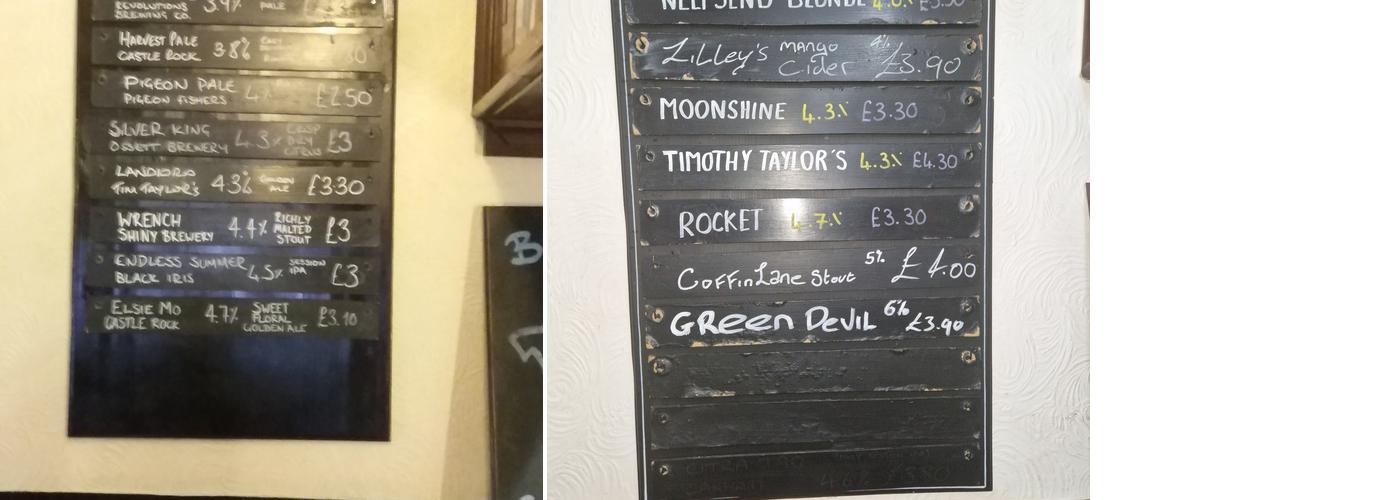 REVOLUTIONS 3.9% PALE
BREWING CO.
HARVEST PALE 3.8%
CASTLE ROCK
PIGEON PALE 4% £2.50
PIGEON FISHERS
SILVER KING 4.3% CRISP DRY CITRUS £3
OSSETT BREWERY
LANDLORD 4.3% GOLDEN ALE £3.30
TIM TAYLOR'S
WRENCH 4.4% RICHLY MALTED STOUT £3
SHINY BREWERY
ENDLESS SUMMER 4.5% SESSION IPA £3
BLACK IRIS
ELSIE MO 4.7% SWEET FLORAL GOLDEN ALE £3.10
CASTLE ROCK
B
BLONDE
Lilley's mango Cider 4% £3.90
MOONSHINE 4.3% £3.30
TIMOTHY TAYLOR'S 4.3% £4.30
ROCKET 4.7% £3.30
Coffin Lane Stout 5% £4.00
GReen DeVIL 6% £3.90